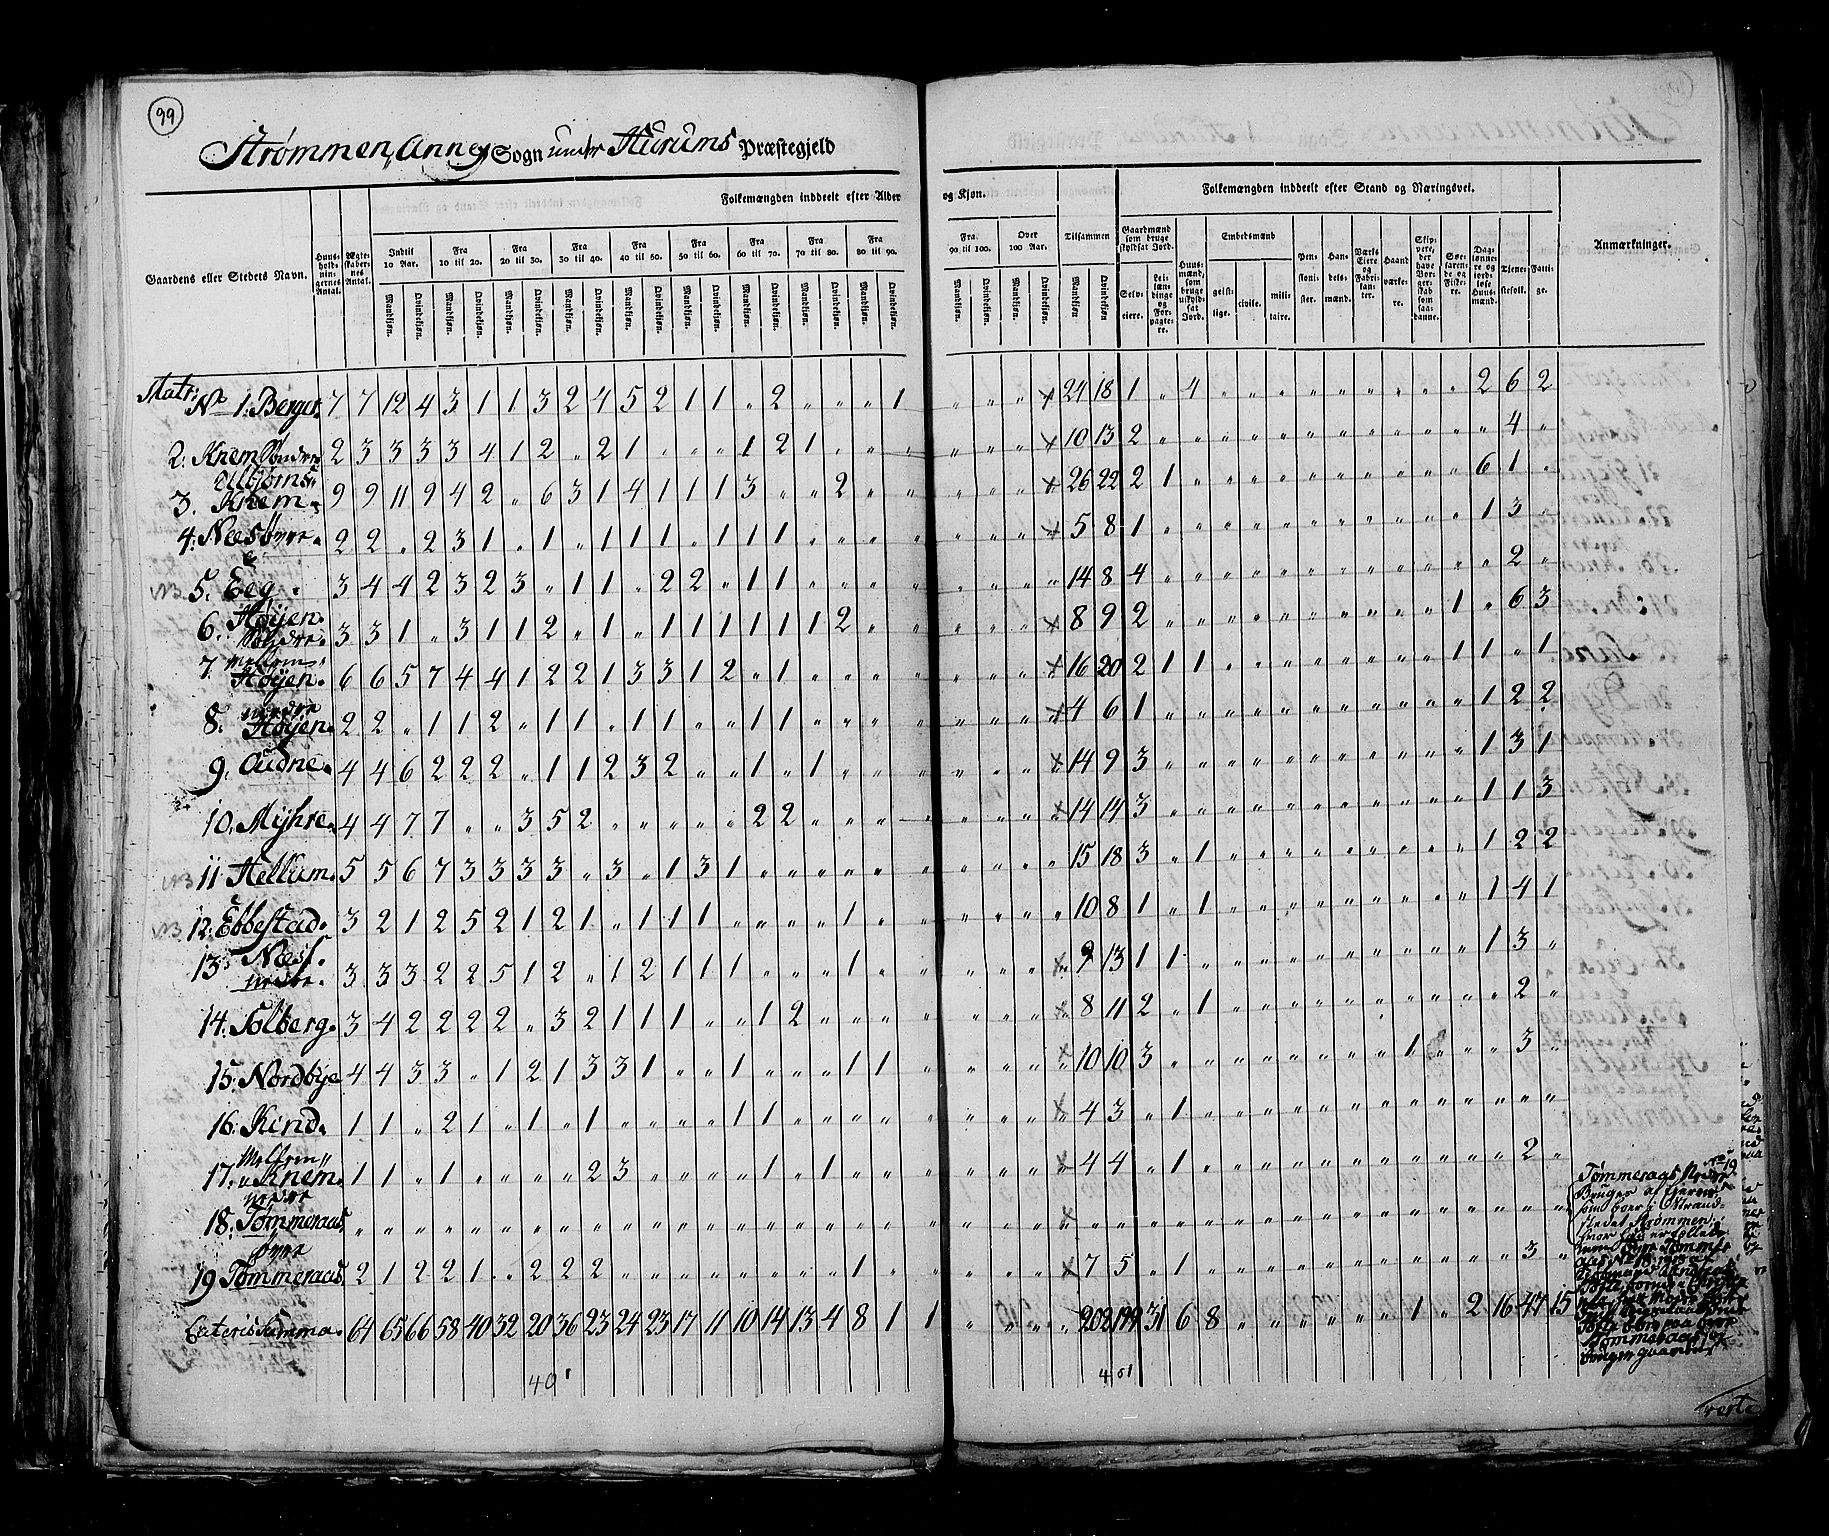 99
Strømmen, Annex Sogn under Hurums Præstegjeld
Gaardens eller Stedets Navn.
Huusholdningernes Antal.
Ægteskabernes Antal.
Folkemængden inddeelt efter Alder og Kjøn.
Indtil 10 Aar.
Fra 10 til 20.
Fra 20 til 30.
Fra 30 til 40.
Fra 40 til 50.
Fra 50 til 60.
Fra 60 til 70.
Fra 70 til 80.
Fra 80 til 90.
Fra 90 til 100.
Over 100 Aar.
Tilsammen
Mandkjøn. Qvindekjøn.
Folkemængden inddeelt efter Stand og Næringsvei.
Gaardmænd som bruge skyldsat Jord.
Selveiere.
Leilændinge og Forpagtere.
Huusmænd, som bruge uskyldsat Jord.
Embedsmænd
geistlige.
civile.
militaire.
Pensionister.
Handelsmænd.
Værks Eiere og Fabrikanter.
Haandværkere.
Skippere, der have Borgerskab som saadanne.
Søefarende og Fiskere.
Daglønnere og jordløse Huusmænd.
Tjenestefolk.
Fattige.
Anmærkninger.
Matr:
No 1. Berger. 7 7 12 4 3 1 1 3 2 4 5 2 1 1 " 2 " " " 1 " " " " 24 18 1 " 4 " " " " " " " " " 2 6 2
2. Knem Søndre 2 3 3 3 3 3 4 1 2 " 2 1 " " " 1 2 1 " " " " " " 10 13 2 " " " " " " " " " " " " 4 "
3. Knem. 9 9 11 9 4 2 " 6 3 1 4 1 1 1 3 " " 2 " " " " " " 26 22 2 1 " " " " " " " " " " 6 1 "
4. Næs øvre. 2 2 " 2 3 1 " 1 " 1 1 1 " 1 1 1 " " " " " " " " 5 8 1 " " " " " " " " " " " 1 3 "
NB 5. Eeg. 3 4 4 2 3 2 3 " 1 1 " 2 2 " 1 1 " " " " " " " " 14 8 4 " " " " " " " " " " " " 2 "
6. Høyen Søndre. 3 3 1 " 3 1 1 2 " 1 " 1 1 1 1 1 1 2 " " " " " " 8 9 2 " " " " " " " " " " 1 " 6 3
7. Mellem Høyen. 6 6 5 7 4 4 1 2 2 1 3 3 1 2 " 1 " " " " " " " " 16 20 2 1 1 " " " " " " " " 1 1 " 1
8. nedre Høyen. 2 2 " 1 1 2 " 1 1 " 1 1 " " 1 1 " " " " " " " " 4 6 1 " " " " " " " " " " " 1 2 2
9. Audne. 4 4 6 2 2 2 " 1 1 2 3 2 " " 1 " 1 " " " " " " " 14 9 3 " " " " " " " " " " " 1 3 1
10. Mijhre. 4 4 7 7 " " 3 5 2 " " " " " 2 2 " " " " " " " " 14 14 3 " " " " " " " " " " " 1 1 3
NB 11. Hellum. 5 5 6 7 3 3 3 3 " 3 " 1 3 1 " " " " " " " " " " 15 18 3 " 1 " " " " " " " " " 1 2 2
NB 12. Ebbestad. 3 2 1 2 5 2 1 2 1 " 1 1 1 " " " 1 " " " " " " " 10 8 1 " 1 " " " " " " " " " 1 4 1
13. Næs nedre. 3 3 3 2 2 5 1 2 " 1 2 1 1 1 " " " 1 " " " " " " 9 13 1 1 " " " " " " " " " " 1 3 "
14. Solberg. 3 4 2 2 2 2 " 3 2 1 1 1 " " 1 2 " " " " " " " " 8 11 2 " 1 " " " " " " " " " " 2 "
15. Nordbye 4 4 3 3 " 1 2 1 3 3 1 " " 1 " " " 1 1 " " " " " 10 10 3 " " " " " " " " " 1 " " 3 "
16. Kind. 1 1 " 2 1 " 1 " 1 " " " " 1 1 " " " " " " " " " 4 3 " 1 " " " " " " " " " " " " "
17. Mellem " Knem. 1 1 " 1 " " " " 2 3 " " " " 1 " 1 " " " " " " " 4 4 " 1 " " " " " " " " " " " 2 "
18. nedre Tømmeraas.
19. øvre Tømmeraas. 2 1 2 2 1 " " 2 2 2 " " " " " " " 1 " " " " " " 7 5 " 1 " " " " " " " " " " " 3 "
Lateris Summa. 64 65 66 58 40 32 20 36 23 24 23 17 11 10 14 13 4 8 1 1 " " " " 202 199 31 6 8 " " " " " " " 1 " 2 16 47 15
40
401
Tømmeraas Nedre No 19
Bruges af Eieren
som boer i Strand-
stedet Strømmen,
verte